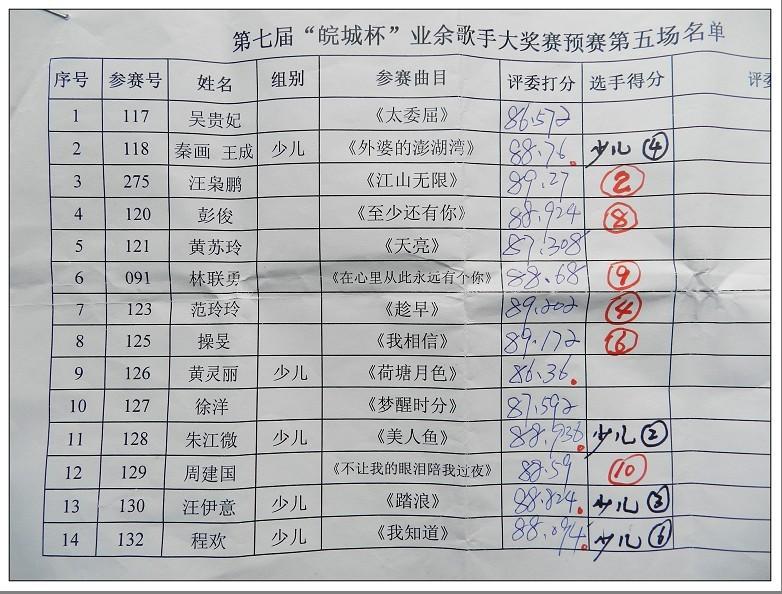 第七届“皖城杯”业余歌手大奖赛预赛第五场名单
序号 参赛号 姓名 组别 参赛曲目 评委打分 选手得分 评委
1 117 吴贵妃 《太委屈》 86.572
2 118 秦画 王成 少儿 《外婆的澎湖湾》 88.76. 少儿④
3 275 汪枭鹏 《江山无限》 89.27 ②
4 120 彭俊 《至少还有你》 88.924 ⑧
5 121 黄苏玲 《天亮》 87.308
6 091 林联勇 《在心里从此永远有个你》 88.68 ⑨
7 123 范玲玲 《趁早》 89.202 ④
8 125 操旻 《我相信》 89.172 ⑥
9 126 黄灵丽 少儿 《荷塘月色》 86.36.
10 127 徐洋 《梦醒时分》 87.592
11 128 朱江微 少儿 《美人鱼》 88.936. 少儿②
12 129 周建国 《不让我的眼泪陪我过夜》 88.59 ⑩
13 130 汪伊意 少儿 《踏浪》 88.824. 少儿③
14 132 程欢 少儿 《我知道》 少儿⑥